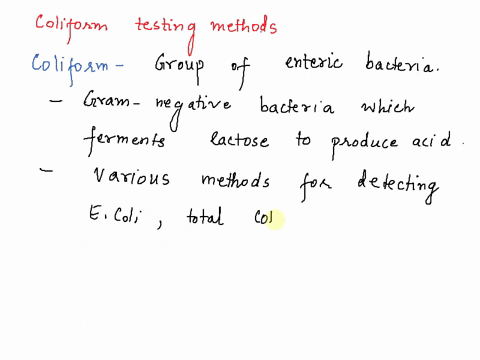 Coliform testing methods
Coliform - Group of enteric bacteria.
- Gram-negative bacteria which
ferments lactose to produce acid.
- Various methods for detecting
E. Coli, total col